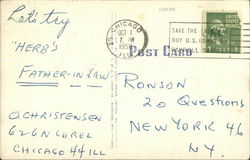 Let's try
"HERB'S
FATHER-IN LAW
O. CHRISTENSEN
626 N LOREL
CHICAGO 44 ILL
CHICAGO
ILL
OCT
SAVE THE
BUY U.S.
Post Card
RONSON
20 Questions
NEW YORK 46
NY.